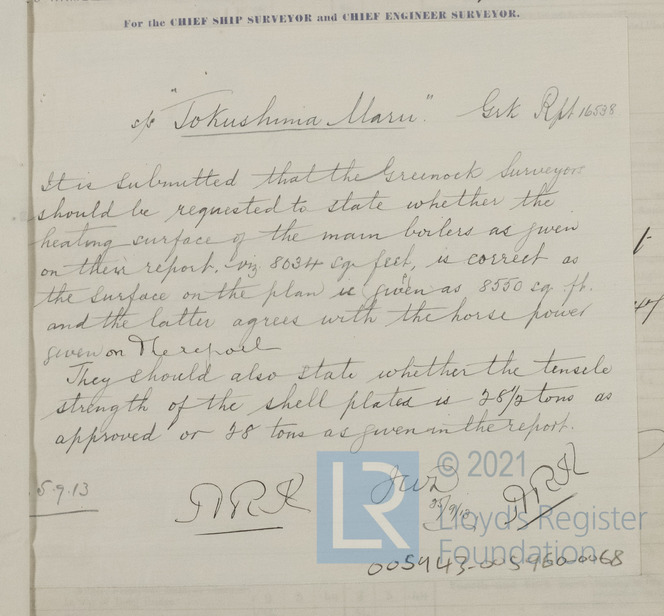 For the CHIEF SHIP SURVEYOR and CHIEF ENGINEER SURVEYOR.
s/s "Tokushima Maru". Grk Rpt 16538
It is submitted that the Greenock Surveyors
should be requested to state whether the
heating surface of the main boilers as given
on their report. viz. 8034 sq. feet, is correct as
the surface on the plan is given as 8550 sq. ft.
and the latter agrees with the horse power
given on the report
They should also state whether the tensile
strength of the shell plates is 28½ tons as
approved or 28 tons as given in the report.
5.9.13
© 2021
LR
Lloyd's Register
Foundation
005943-005960-0068